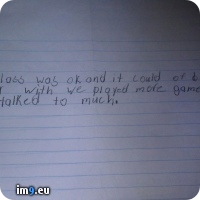 lass was ok and it could of b
I wish we played more game
talked to much.
im9.eu